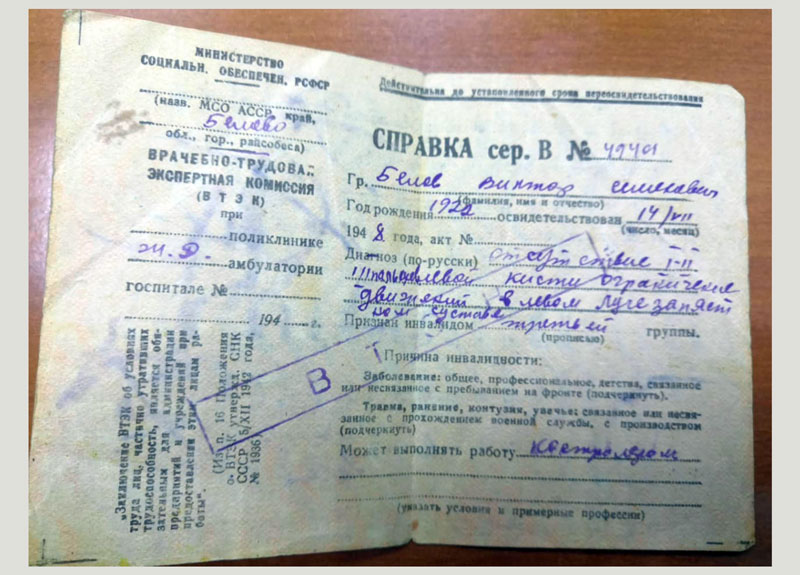 МИНИСТЕРСТВО
СОЦИАЛЬН. ОБЕСПЕЧЕН. РСФСР
(назв. МСО АССР, край,
Белово
обл., гор., райсобеса)
ВРАЧЕБНО-ТРУДОВАЯ
ЭКСПЕРТНАЯ КОМИССИЯ
(ВТЭК)
при
поликлинике
Ж.Д. амбулатории
госпитале №
194 г.
„Заключение ВТЭК об условиях
труда лиц, частично утративших
трудоспособность, является обя-
зательным для администрации
предприятий и учреждений при
предоставлении этим лицам ра-
боты".
(Из п. 16 Положения
о ВТЭК утвержд. СНК
СССР 5/XII 1942 года,
№ 1936)
Действительна до установленного срока переосвидетельствования
СПРАВКА сер. В № 49401
Гр. Белов Виктор Семенович
(фамилия, имя и отчество)
Год рождения 1922 освидетельствован 14/VII
(число, месяц)
1948 года, акт №
Диагноз (по-русски) отсутствие I-II
III пальц левой кисти ограничение
движений в левом лучезапяст
ном суставе
Признан инвалидом третьей группы.
(прописью)
Причина инвалидности:
Заболевание: общее, профессиональное, детства, связанное
или несвязанное с пребыванием на фронте (подчеркнуть).
Травма, ранение, контузия, увечье: связанное или несвя-
занное с прохождением военной службы, с производством
(подчеркнуть)
Может выполнять работу
(указать условия и примерные профессии)
В Т